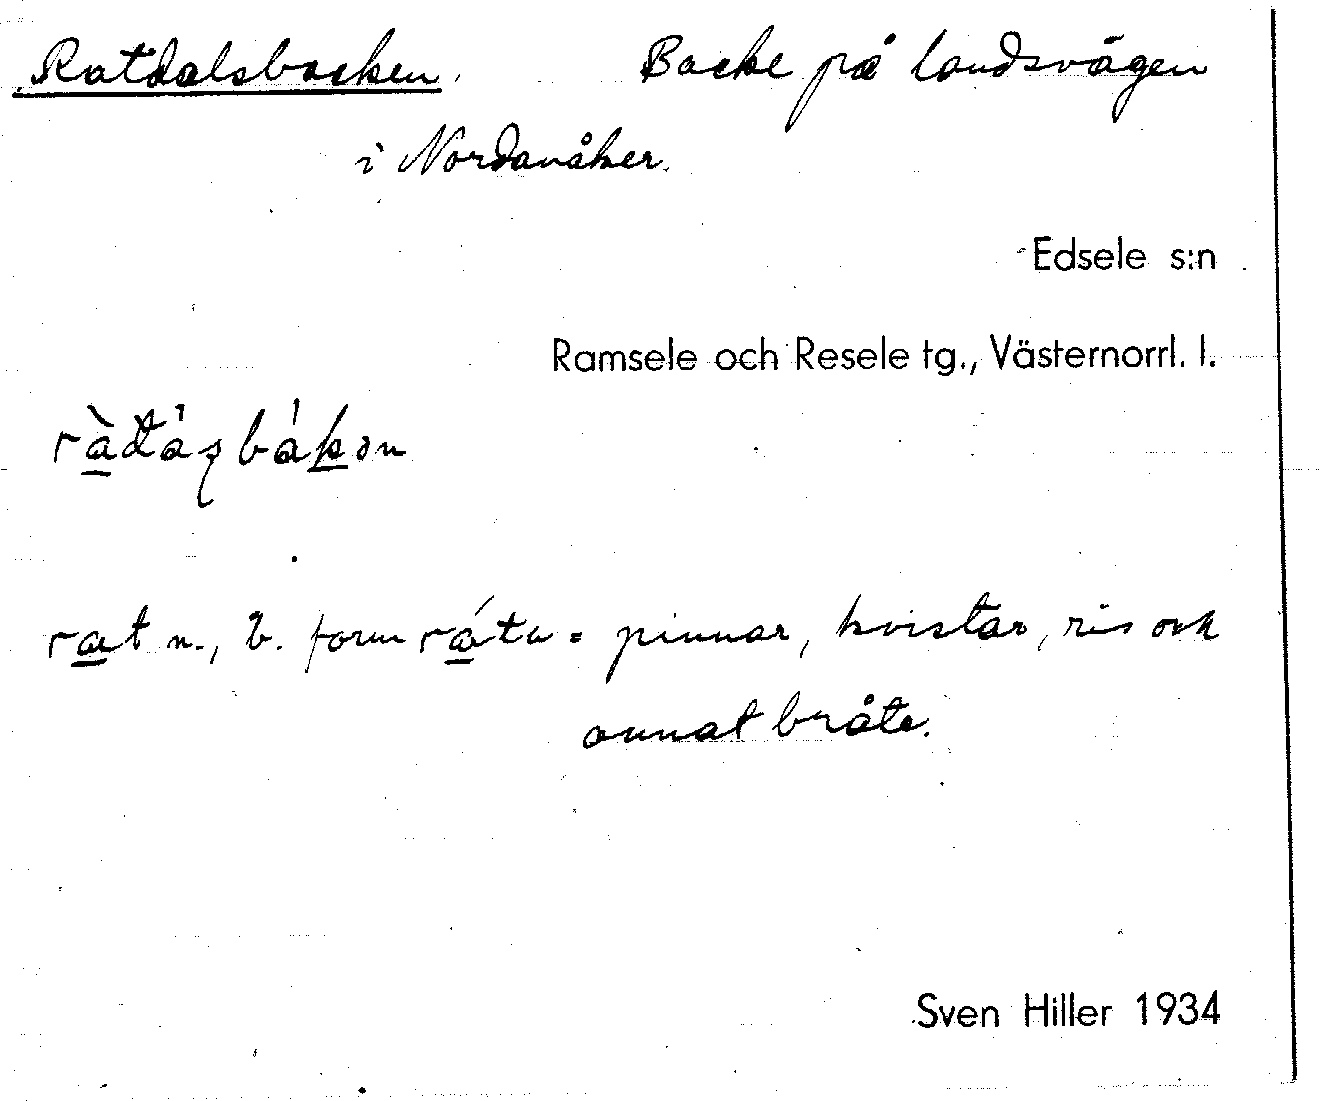 Ratdalsbacken. Backe på landsvägen
i Nordanåker.
Edsele s:n
Ramsele och Resele tg., Västernorrl. l.
rat n., b. form ráta = pinnar, kvistar, ris och
annat bråte.
Sven Hiller 1934